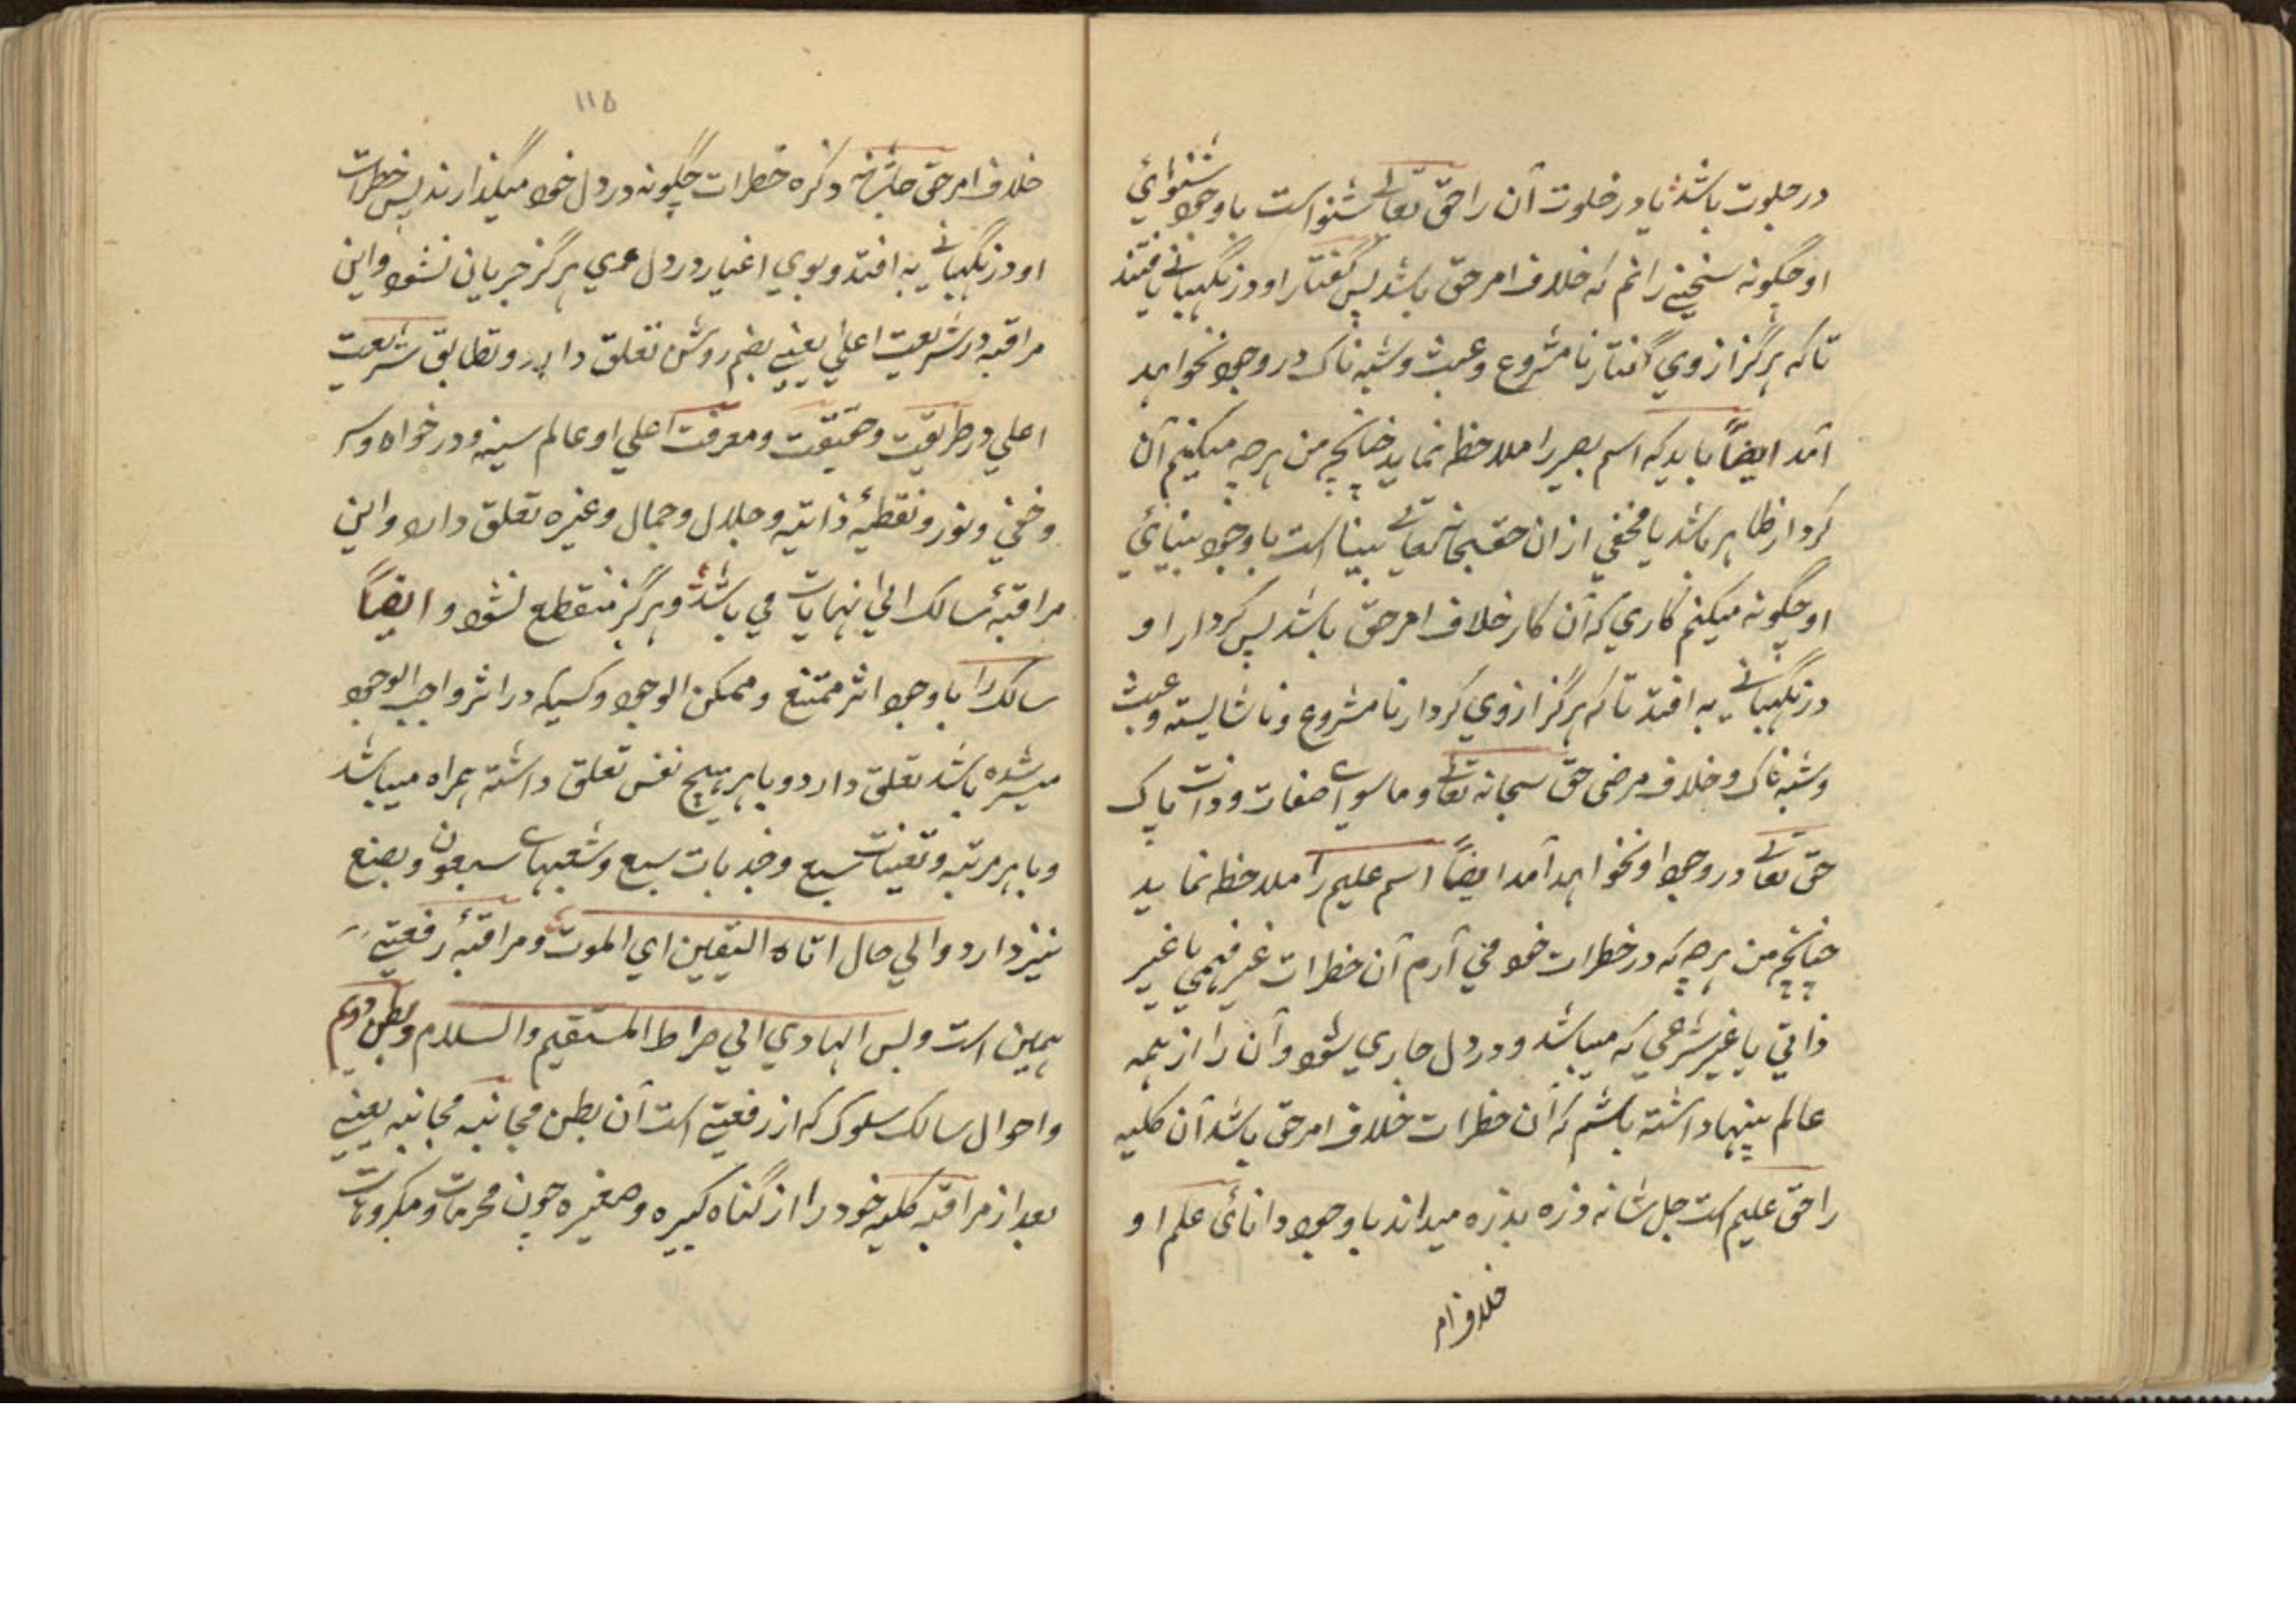 در جلوت باشد یا در خلوت آن را حق تعالے شنوا است باوجود شنوائي
او چگونه سخنے رانم که خلاف امر حق باشد پس گفتار او در نگہبانے یافتند
تا که هرگز از وي گفتار نا مشروع و عبث و شبه ناک در وجود نخواهد
آمد ایضاً باید که اسم بصیر را ملاحظه نماید چنانچه من هرچه میکنم آن
کردار ظاهر باشد یا مخفي از ان حق سبحانه تعالے بینا است باوجود بینائي
او چگونه میکنم کاري که آن کار خلاف امر حق باشد پس کردار او
در نگہبانے به افتد تا که هرگز از وي کردار نا مشروع و ناشایسته و عبث
و شبه ناک و خلاف مرضی حق سبحانه تعالے و ماسواے صفات و ذات پاک
حق تعالے در وجود او نخواهد آمد ایضاً اسم علیم را ملاحظه نماید
چنانچه من هرچه که در خطرات خود مي آرم آن خطرات غیر فهمي یا غیر
ذاتي یا غیر شرعي که میباشد و در دل جاري شود و آن را از همه
عالم پنہا داشته باشم که آن خطرات خلاف امر حق باشد آن کلیه
را حق علیم است جل شانه ذره بذره میداند باوجود دانائی علم او
خلاف ام
۱۱۵
خلاف امر حق جلشانه ذکره خطرات چگونه در دل خود میگذارند پس خطرات
او در نگہبانے به افتد و بوي اغیار در دل وي هرگز جریان نشود و این
مراقبه در شریعت اعلي یعنے بضم روش تعلق دارد و تطابق شریعت
اعلي در طریقت و حقیقت و معرفت اعلي او عالم سینه و در خواه و سر
و خفي و نور و نقطیهٔ ذاتیه و جلال و جمال و غیره تعلق دارد و این
مراقبهٔ سالک الي انہایات مي باشد و هرگز منقطع نشود و ایضاً
سالک را باوجود اثر ممتنع و ممکن الوجود و کسیکه در اثر واجب الوجود
میسر شده باشد تعلق دارد و با هر هیچ نفس تعلق داشته همراه میباشد
و با هر مرتبه و تعینات سبع و جذبات سبع و شعبہاے سبعون و بضع
نیز دارد و الي حال اتاه الیقین اي الموت و مراقبهٔ رفعتے
همین است و بس الهادي الي صراط المستقیم والسلام و بطن دوم
و احوال سالک سلوک که از رفعتے است آن بطن مجانبه مجانبه یعنے
بعد از مراقبه کلیه خود را از گناه کبیره و صغیره چون محرمات و مکروہات